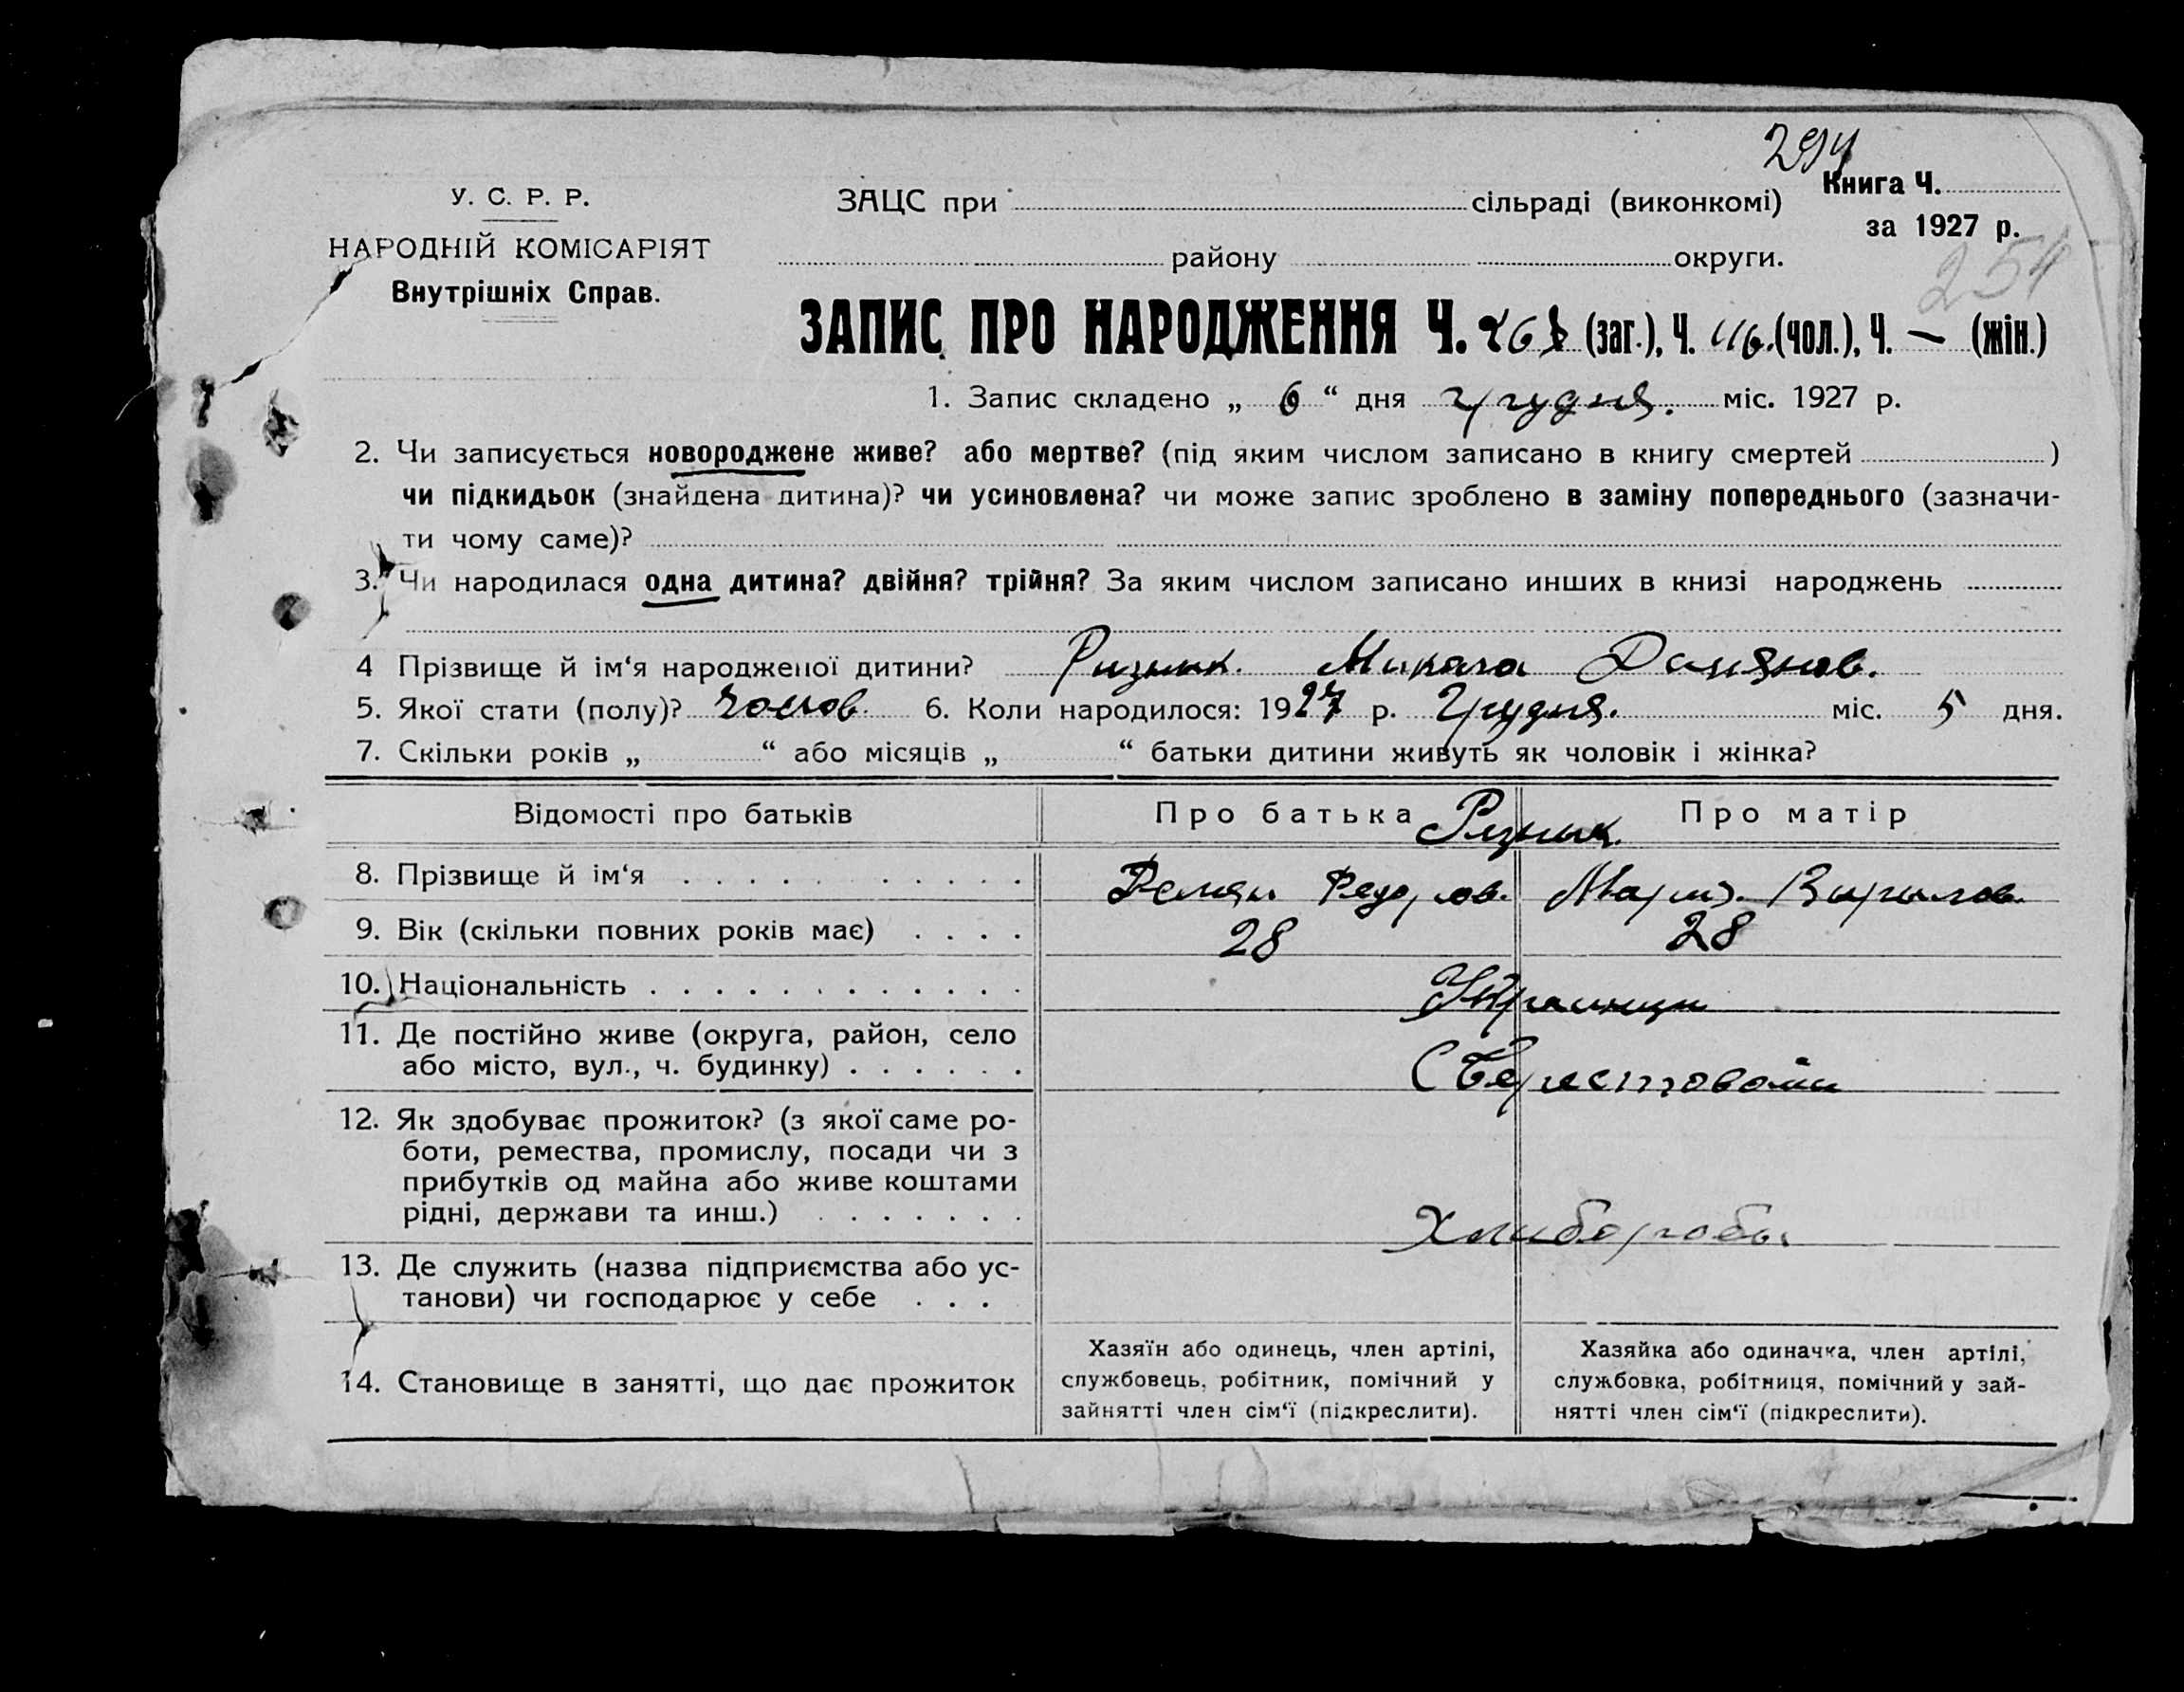 294
У. С. Р. Р.
НАРОДНІЙ КОМІСАРІЯТ
Внутрішніх Справ.
ЗАЦС при сільраді (виконкомі)
Книга Ч.
за 1927 р.
району округи.
254
ЗАПИС ПРО НАРОДЖЕННЯ Ч. (заг.), Ч. 116 (чол.), Ч. — (жін.)
1. Запис складено „ 6 “ дня Грудня. міс. 1927 р.
2. Чи записується новороджене живе? або мертве? (під яким числом записано в книгу смертей )
чи підкидьок (знайдена дитина)? чи усиновлена? чи може запис зроблено в заміну попереднього (зазначи-
ти чому саме)?
3. Чи народилася одна дитина? двійня? трійня? За яким числом записано инших в книзі народжень
4 Прізвище й ім‘я народженої дитини? Ризнык. Микола Демянов.
5. Якої стати (полу)? Чолов. 6. Коли народилося: 1927 р. Грудня. міс. 5 дня.
7. Скільки років „ “ або місяців „ “ батьки дитини живуть як чоловік і жінка?
Відомості про батьків
Про батька
Про матір
Ризнык.
8. Прізвище й ім‘я
Демян Федоров.
Кирилов.
9. Вік (скільки повних років має)
28
28
10. Національність
Украинци
11. Де постійно живе (округа, район, село
або місто, вул., ч. будинку)
С
12. Як здобуває прожиток? (з якої саме ро-
боти, ремества, промислу, посади чи з
прибутків од майна або живе коштами
рідні, держави та инш.)
Хлибороби
13. Де служить (назва підприємства або ус-
танови) чи господарює у себе
14. Становище в занятті, що дає прожиток
Хазяїн або одинець, член артілі,
службовець, робітник, помічний у
зайнятті член сім‘ї (підкреслити).
Хазяйка або одиначка, член артілі,
службовка, робітниця, помічний у зай-
нятті член сім‘ї (підкреслити).